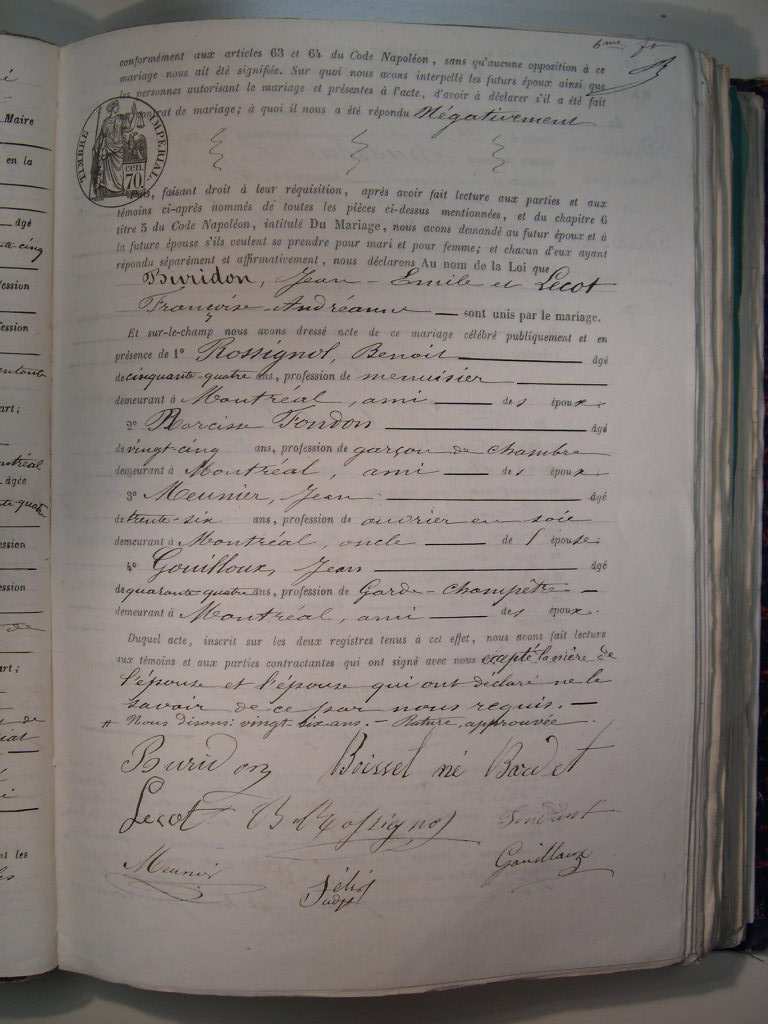 6me
conformément aux articles 63 et 64 du Code Napoléon, sans qu'aucune opposition à ce
mariage nous ait été signifiée. Sur quoi nous avons interpellé les futurs époux ainsi que
les personnes autorisant le mariage et présentes à l'acte, d'avoir à déclarer s'il a été fait
contrat de mariage; à quoi il nous a été répondu Négativement
TIMBRE IMPÉRIAL
70 cen.
Puis, faisant droit à leur réquisition, après avoir fait lecture aux parties et aux
témoins ci-après nommés de toutes les pièces ci-dessus mentionnées, et du chapitre 6
titre 5 du Code Napoléon, intitulé Du Mariage, nous avons demandé au futur époux et à
la future épouse s'ils veulent se prendre pour mari et pour femme; et chacun d'eux ayant
répondu séparément et affirmativement, nous déclarons Au nom de la Loi que
Buridon, Jean-Emile et Lecot
Françoise-Andréanne — sont unis par le mariage.
Et sur-le-champ nous avons dressé acte de ce mariage célébré publiquement et en
présence de 1° Rossignol, Benoit — âgé
de cinquante-quatre ans, profession de menuisier —
demeurant à Montréal, ami — des époux.
2° Narcisse Fondon — âgé
de vingt-cinq ans, profession de garçon de chambre
demeurant à Montréal, ami — des époux
3° Meunier, Jean — âgé
de trente-six ans, profession de ouvrier en soie
demeurant à Montréal, oncle — de l'épouse
4° Gouilloux, Jean — âgé
de quarante-quatre ans, profession de Garde-champêtre —
demeurant à Montréal, ami — des époux.
Duquel acte, inscrit sur les deux registres tenus à cet effet, nous avons fait lecture
aux témoins et aux parties contractantes qui ont signé avec nous excepté la mère de
l'épouse et l'épouse qui ont déclaré ne le
savoir de ce par nous requis. —
# Nous disons: vingt six ans. — Rature approuvée.
Buridon Boissel né Bardet
Lecot B Rossignol
Meunier Gouilloux